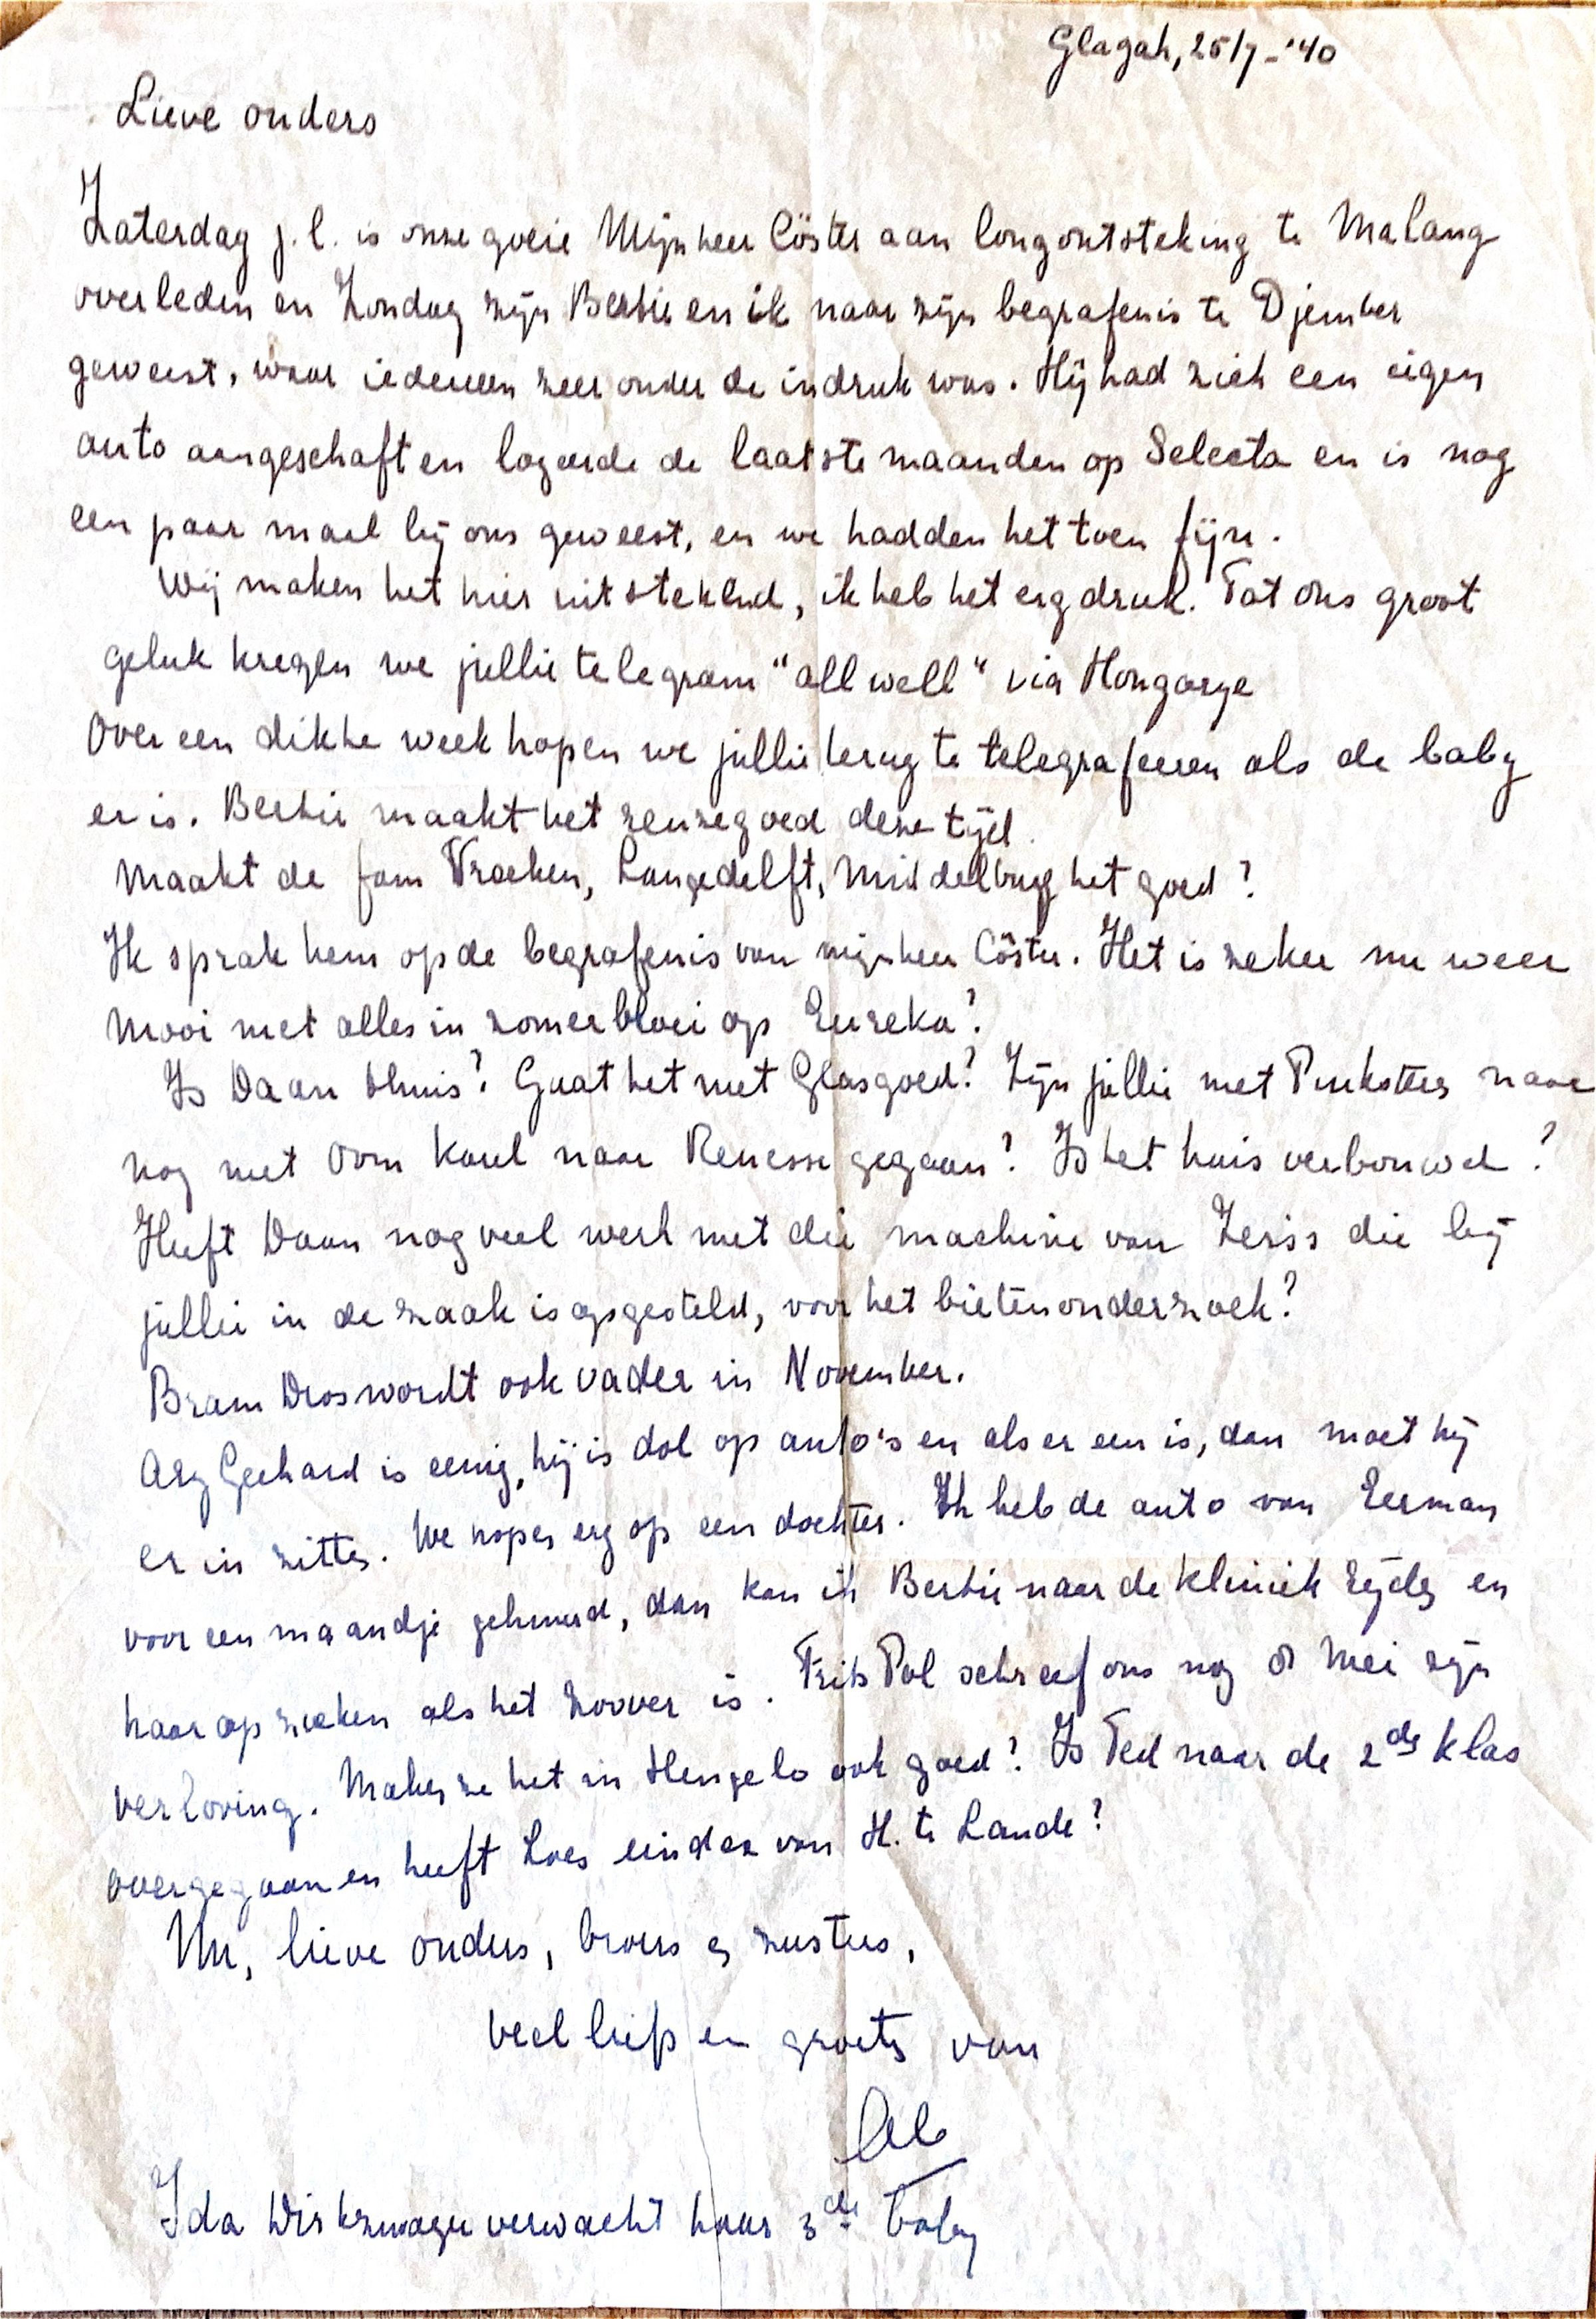 Glagah, 25/7-'40
Lieve ouders
Zaterdag j.l. is onze goeie Mijnheer Cöster aan longontsteking te Malang
overleden en Zondag zijn Bertie en ik naar zijn begrafenis te Djember
geweest, waar iedereen zeer onder de indruk was. Hij had zich een eigen
auto aangeschaft en logeerde de laatste maanden op Selecta en is nog
een paar maal bij ons geweest, en we hadden het toen fijn.
Wij maken het hier uitstekend, ik heb het erg druk. Tot ons groot
geluk kregen we jullie telegram "all well" via Hongarye
Over een dikke week hopen we jullie terug te telegrafeeren als de baby
er is. Bertie maakt het reuzegoed deze tijd.
Maakt de fam Vroeken, Langedelft, Middelburg het goed?
Ik sprak hem op de begrafenis van mijnheer Cöster. Het is zeker nu weer
mooi met alles in zomerbloei op Eureka?
Is Daan thuis? Gaat het met Glas goed? Zijn jullie met Pinkster naar
nog met Oom Karel naar Renesse gegaan? Is het huis verbouwd?
Heeft Daan nog veel werk met die machine van Zeiss die bij
jullie in de zaak is opgesteld, voor het bietenonderzoek?
Bram Dros wordt ook vader in November.
Ary Gerhard is eenig, hij is dol op auto's en als er een is, dan moet hij
er in zitten. We hopen erg op een dochter. Ik heb de auto van Eerman
voor een maandje gehuurd, dan kan ik Bertie naar de kliniek rijden en
haar opzoeken als het zoover is. Frits Pol schreef ons nog 8 Mei zijn
verloving. Maken ze het in Hengelo ook goed? Is Ted naar de 2de klas
overgegaan en heeft Loes eindex van H. te Lande?
Nu, lieve ouders, broers en zusters,
veel liefs en groeten van
Ab
Ida Dirkzwager verwacht haar 3de baby